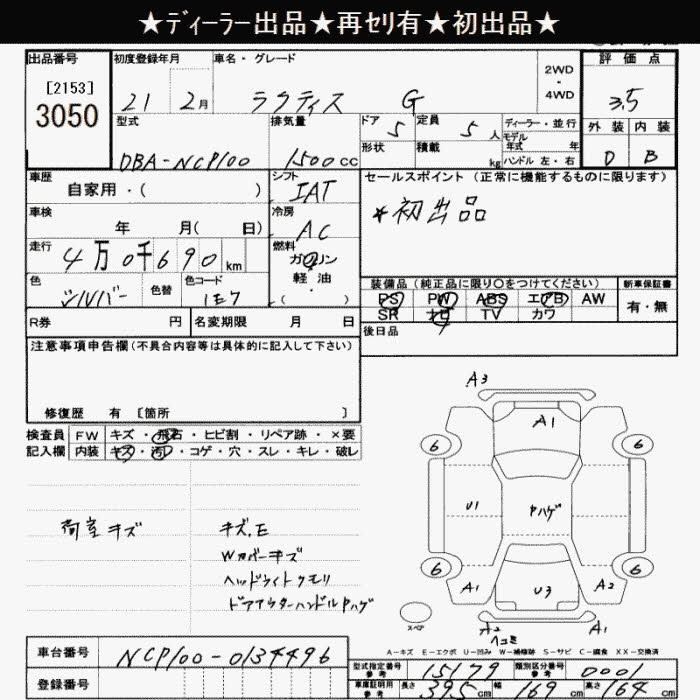 ★ディーラー出品★再セリ有★初出品★
出品番号
[2153]
3050
初度登録年月
21 2月
車名・グレード
ラクティス G
2WD
・
4WD
評価点
3.5
外装 内装
D B
型式
DBA-NCP100
排気量
1500cc
ドア 5
形状
定員 5人
積載 kg
ディーラー・並行
モデル
年式 年
ハンドル 左・右
車歴
自家用・( )
シフト
IAT
セールスポイント(正常に機能するものに限ります)
*初出品
車検
年 月( 日)
冷房
AC
走行
4万0千690km
燃料
ガソリン
軽油
・( )
色
シルバー
色替
色コード
1E7
装備品(純正品に限り○をつけてください)
新車保証書
PS PW ABS エアB AW
SR ナビ TV カワ
有・無
R券 円
名変期限 月 日
後日品
注意事項申告欄(不具合内容等は具体的に記入して下さい)
修復歴 有 [箇所 ]
検査員
記入欄
FW キズ・飛石・ヒビ割・リペア跡・×要
内装 キズ・汚レ・コゲ・穴・スレ・キレ・破レ
荷室キズ
キズ、E
Wカバーキズ
ヘッドライトクモリ
ドアアウターハンドルヤハゲ
A3
A1
6 6
U1 ヤハゲ
6 6
A1 U3 A2
スペア
A2 A1
ヘコミ
A-キズ E-エクボ U-凹み W-補修跡 S-サビ C-腐食 XX-交換済
車台番号
NCP100-0134496
登録番号
型式指定番号
参考
15179
類別区分番号
参考
0001
車庫証明用
参考
長さ 395cm 幅 169cm 高さ 164cm